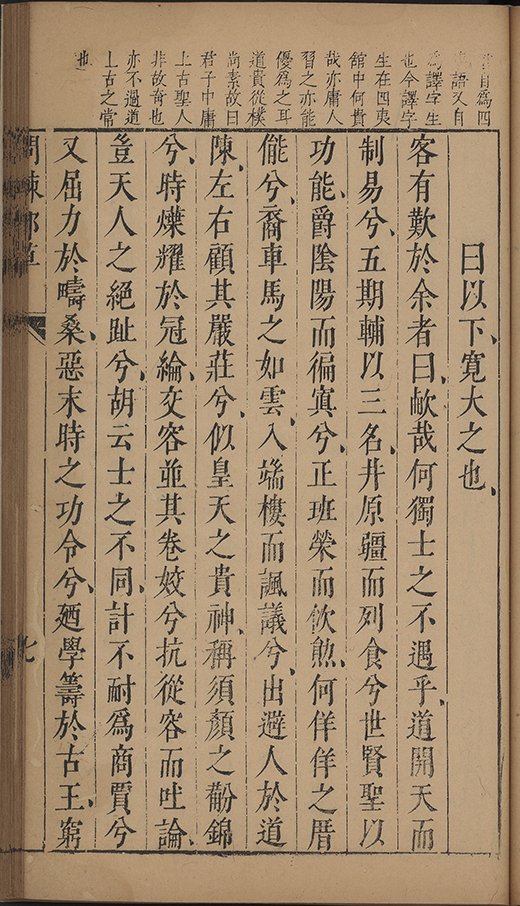 自為四
語又自
為譯字生
也今譯字
生在四夷
館中何貴
哉亦庸人
習之亦能
優為之耳
道貴從樸
尚素故曰
君子中庸
上古聖人
非故奇也
亦不過道
上古之常
也
曰以下寬大之也
客有歎於余者曰㰦哉何獨士之不遇乎道開天而
制易兮五期輔以三名井原疆而列食兮世賢聖以
功能爵陰陽而徧寘兮正班榮而飲勲何佯佯之厝
儱兮裔車馬之如雲入端樓而諷議兮出避人於道
陳左右顧其嚴莊兮似皇天之貴神稱須顏之翻錦
兮時爍耀於冠綸交容並其卷姣兮抗從容而吐論
豈天人之絕趾兮胡云士之不同計不耐為商賈兮
又屈力於疇桑惡末時之功令兮廼學籌於古王窮
七